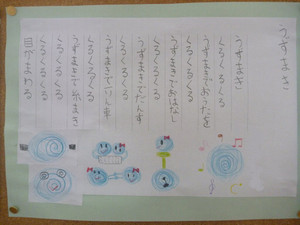 うずまき
うずまき
くるくるくる
うずまきでおうたを
くるくるくる
うずまきでおはなし
くるくるくる
うずまきでだん車
くるくるくる
うずまきで糸まき
くるくるくる
くるくるくる
目がまわる